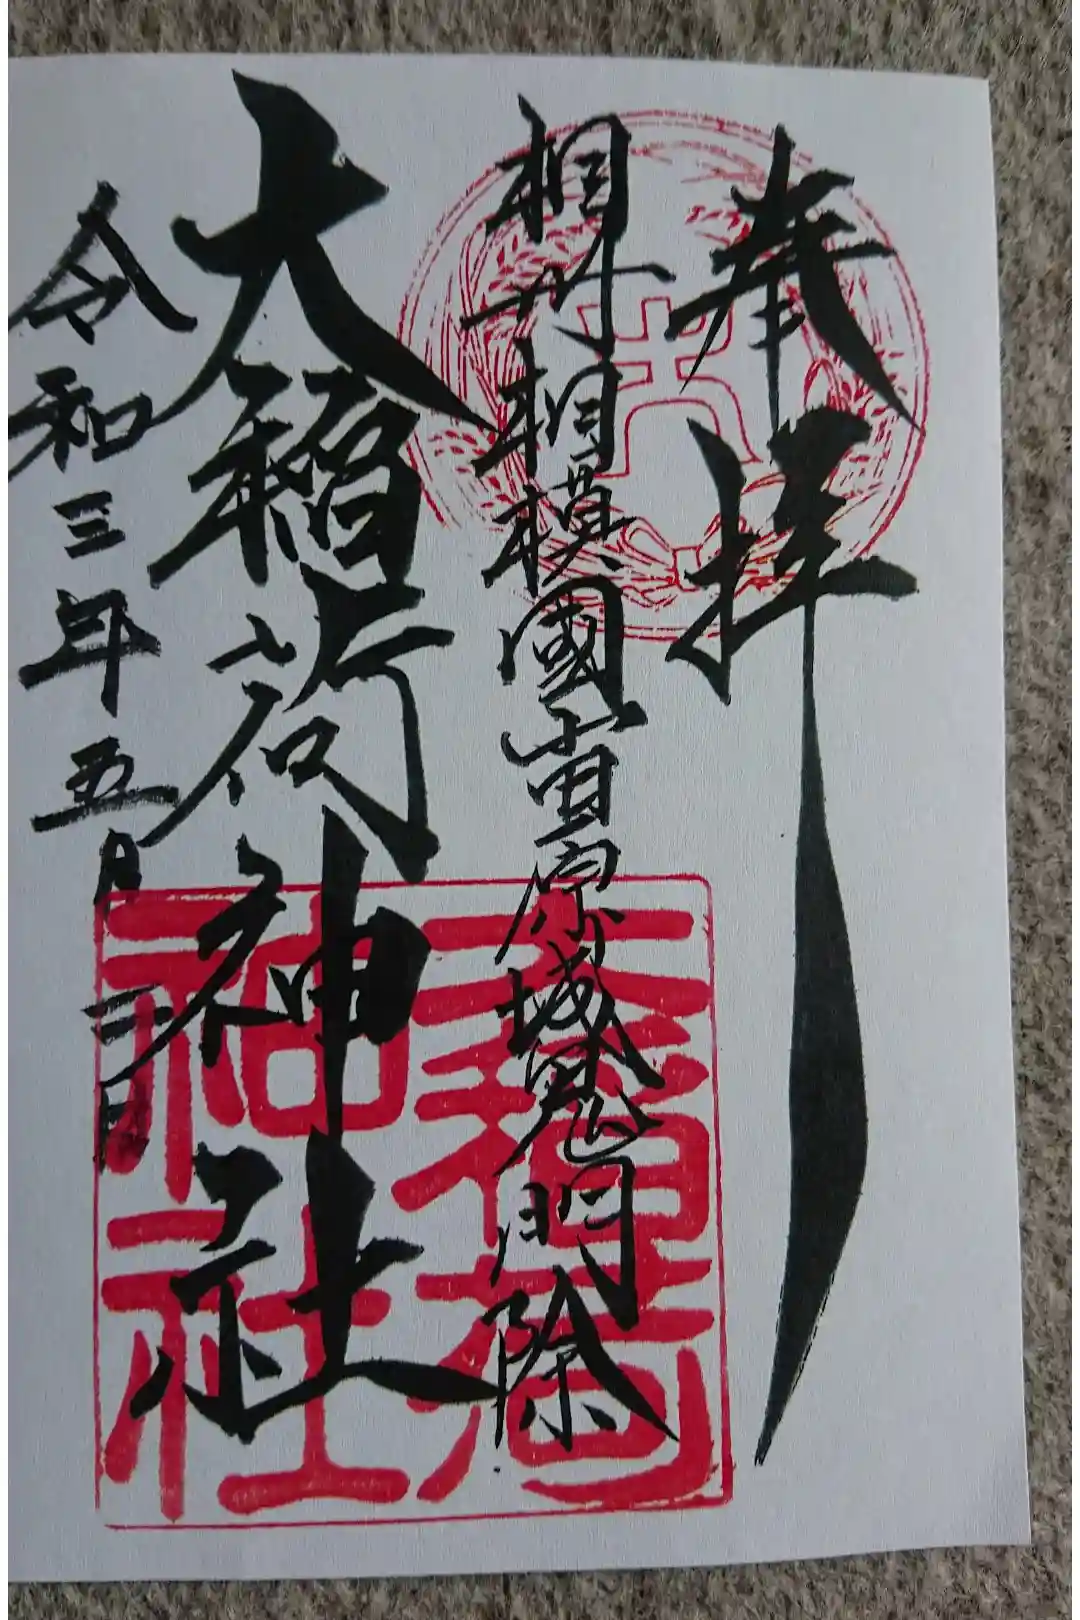 奉拝
大
相州相模國小田原城鬼門除
大稲荷神社
大稲荷神社
令和三年五月三日